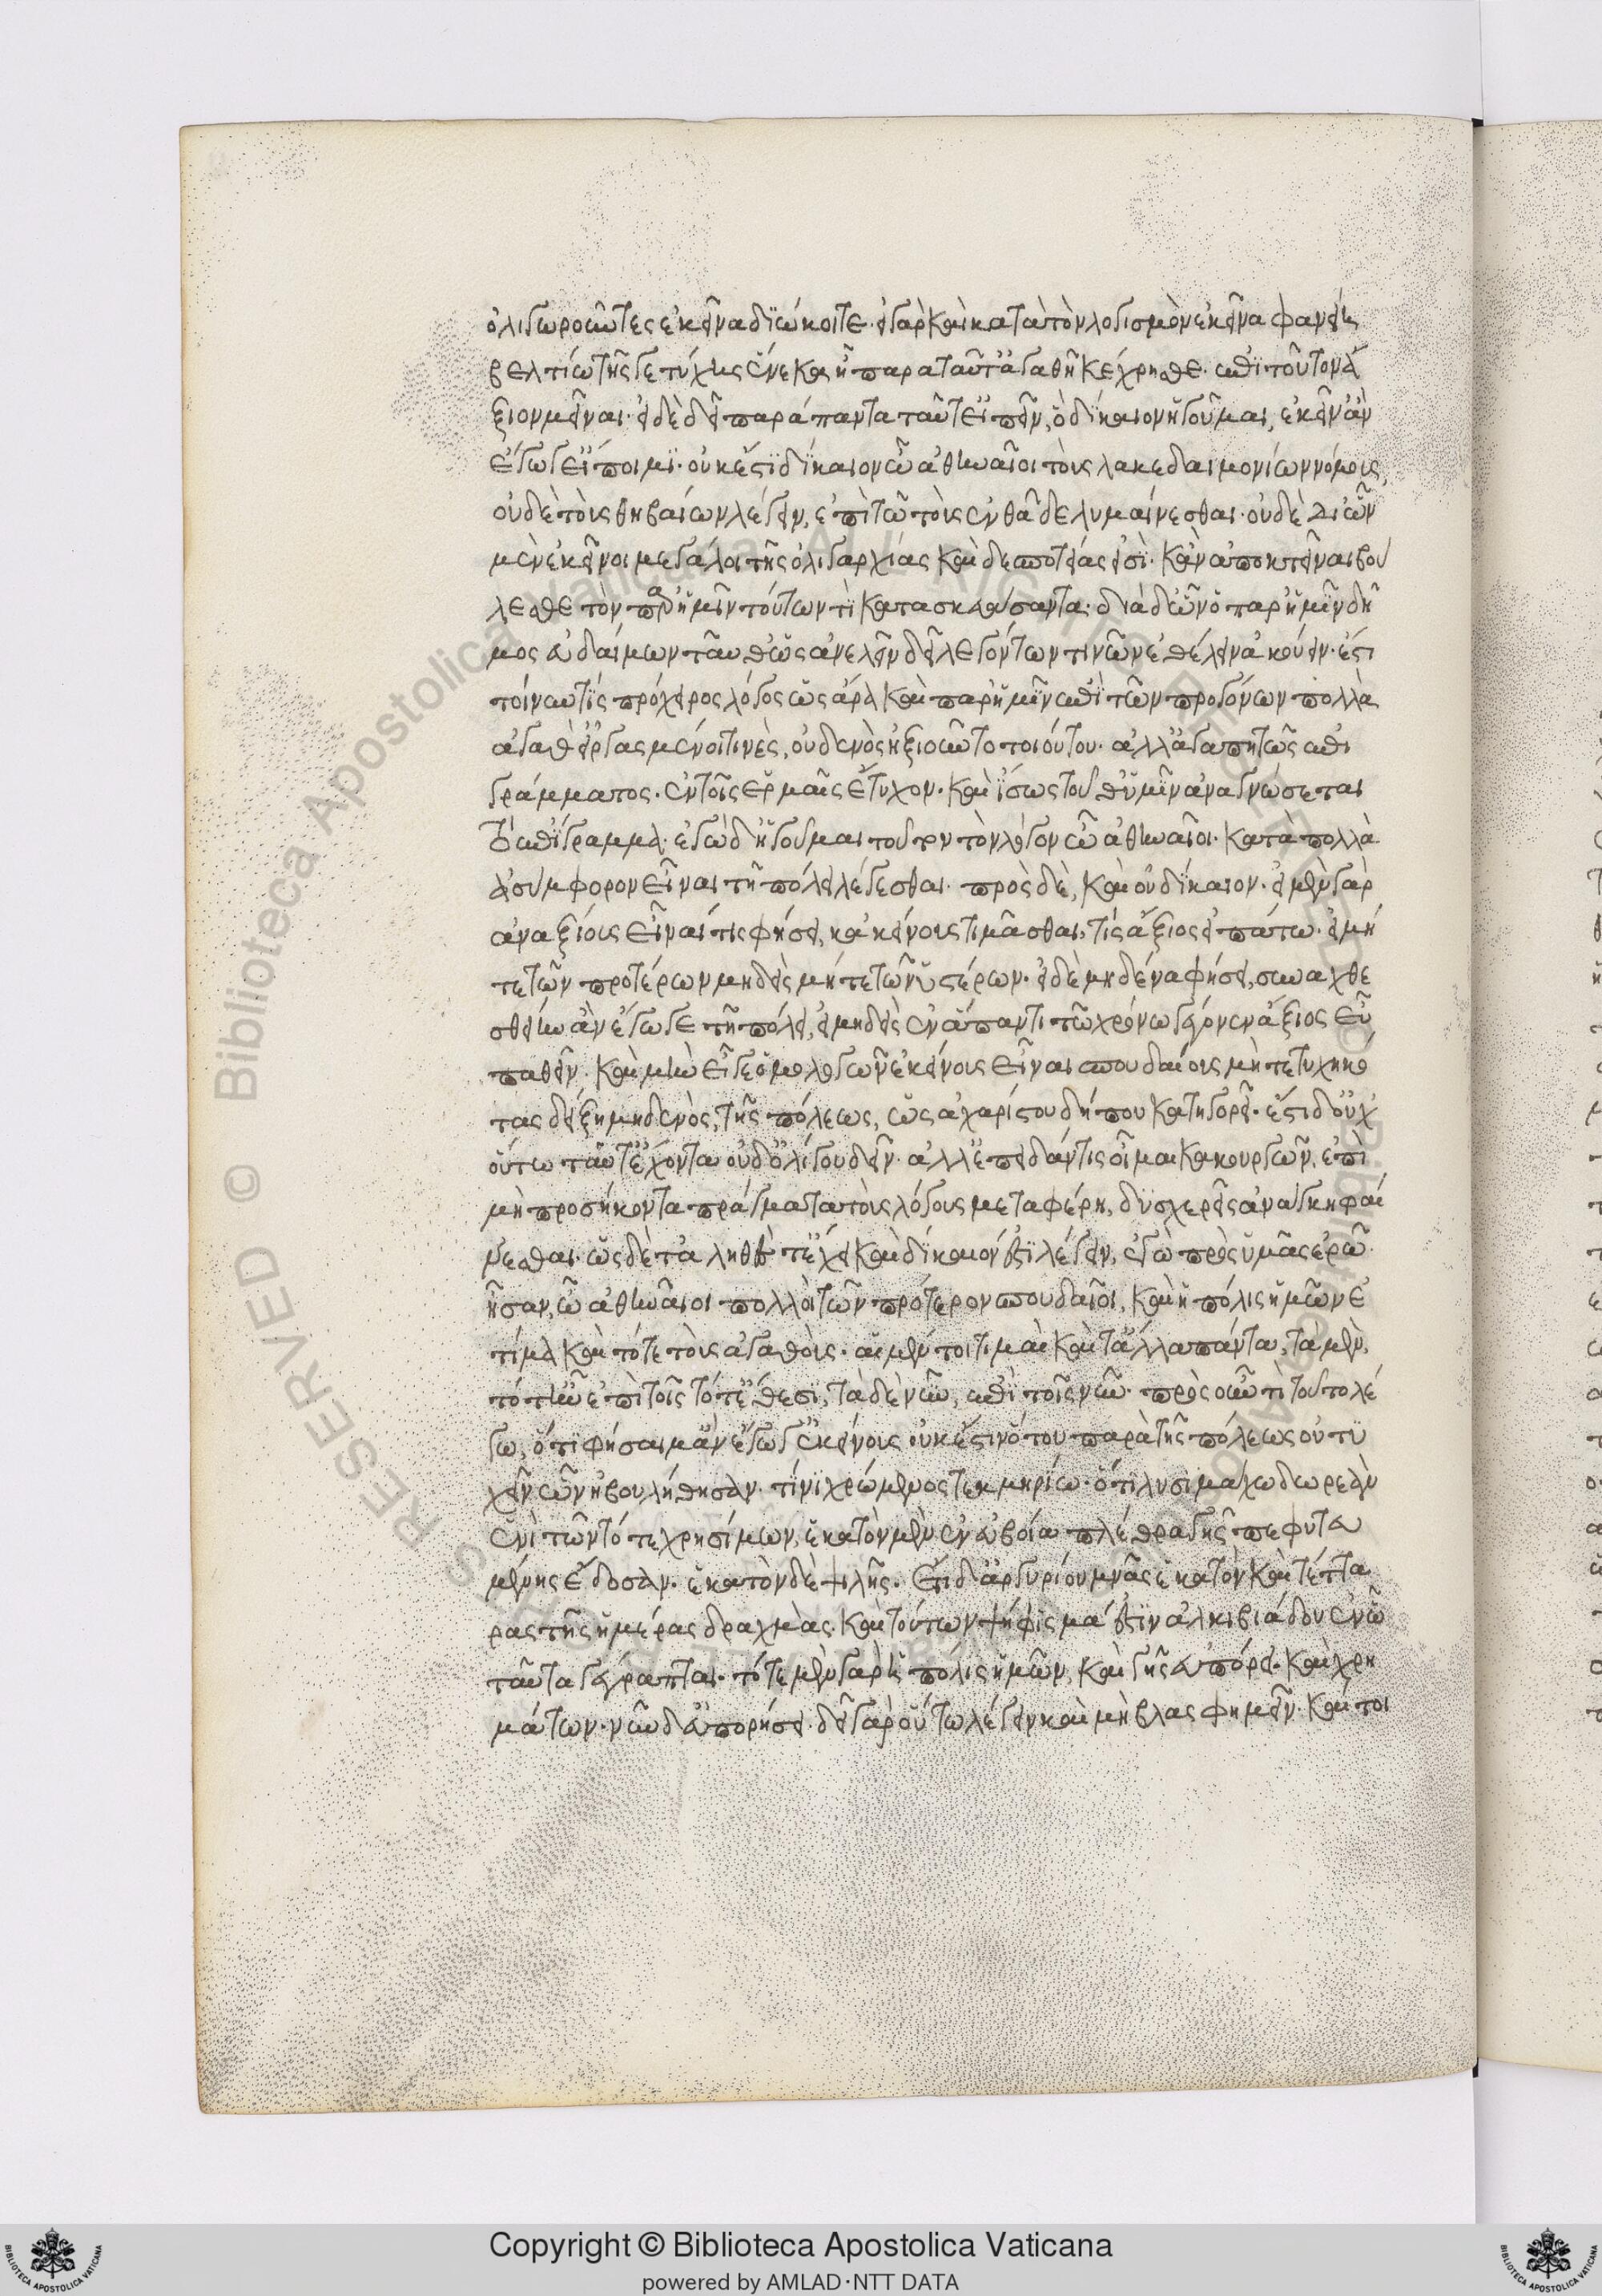 ὀλιγωροῦντες ἐκεῖνα διώκοιτε. εἰ γὰρ καὶ κατὰ τὸν λογισμὸν ἐκεῖνα φανείη
βελτίω τῆς γε τύχης ἕνεκα ᾗ παρὰ ταῦτ' ἀγαθῇ κέχρησθε. ἐπὶ τούτον ἄ
ξιον μεῖναι. εἰ δὲ δεῖ παρὰ πάντα ταῦτ' εἰπεῖν, ὃ δίκαιον ἡγοῦμαι, ἐκεῖν' ἂν
ἔγωγ' εἴποιμι. οὐκ ἔστι δίκαιον ὦ ἀθηναῖοι τοὺς λακεδαιμονίων νόμους,
οὐδὲ τοὺς θηβαίων λέγειν, ἐπὶ τῷ τοὺς ἐνθάδε λυμαίνεσθαι. οὐδὲ δι' ὧν
μὲν ἐκεῖνοι μεγάλοι τῆς ὀλιγαρχίας καὶ δεσποτείας εἰσὶ. κἂν ἀποκτεῖναι βού
λεσθε τὸν παρ' ἡμῖν τούτων τὶ κατασκευάσαντα. διὰ δ' ὧν ὁ παρ' ἡμῖν δῆ
μος εὐδαίμων ταῦθ' ὡς ἀνελεῖν δεῖ λεγόντων τινῶν ἐθέλειν ἀκούειν. ἔστι
τοίνυν τίς πρόχειρος λόγος ὡς ἄρα καὶ παρ' ἡμῖν ἐπὶ τῶν προγόνων πολλὰ
ἀγαθ' εἰργασμένοι τινὲς, οὐδενὸς ἠξιοῦντο τοιούτου. ἀλλ' ἀγαπητῶς ἐπι
γράμματος. ἐν τοῖς ἑρμαῖς ἔτυχον. καὶ ἴσως τοῦθ' ὑμῖν ἀναγνώσεται
τὸ ἐπίγραμμα. ἐγὼ δ' ἡγοῦμαι τοῦτον τὸν λόγον ὦ ἀθηναῖοι. κατὰ πολλὰ
ἀσύμφορον εἶναι τῇ πόλει λέγεσθαι. πρὸς δὲ, καὶ οὐ δίκαιον. εἰ μὲν γὰρ
ἀναξίους εἶναί τις φήσει, κἀκείνους τιμᾶσθαι, τίς ἄξιος εἰπάτω. εἰ μή
τε τῶν προτέρων μηδεὶς μήτε τῶν ὑστέρων. εἰ δὲ μηδένα φήσει, συναχθε
σθείην ἂν ἔγωγε τῇ πόλει, εἰ μηδεὶς ἐν ἅπαντι τῷ χρόνῳ γέγονεν ἄξιος εὖ
παθεῖν. καὶ μὴν εἴ γε ὁμολογῶν ἐκείνους εἶναι σπουδαίους μὴ τετυχηκό
τας δείξῃ μηδενὸς, τῆς πόλεως, ὡς ἀχαρίστου δήπου κατηγορεῖ. ἔστι δ' οὐχ
οὕτω ταῦτ' ἔχοντα οὐδ' ὀλίγου δεῖν. ἀλλ' ἐπειδάν τις οἶμαι κακουργῶν, ἐπὶ
μὴ προσήκοντα πράγματα τοὺς λόγους μεταφέρῃ, δυσχερεῖς ἀνάγκη φαί
νεσθαι. ὡς δὲ τἀληθές τ' ἔχει καὶ δίκαιόν ἐστι λέγειν, ἐγὼ πρὸς ὑμᾶς ἐρῶ.
ἦσαν, ὦ ἀθηναῖοι πολλοὶ τῶν πρότερον σπουδαῖοι, καὶ ἡ πόλις ἡμῶν ἐ
τίμα καὶ τότε τοὺς ἀγαθοὺς. αἱ μέντοι τιμαὶ καὶ τἄλλα πάντα, τὰ μὲν,
τότ' ἦν ἐπὶ τοῖς τότ' ἔθεσι, τὰ δὲ νῦν, ἐπὶ τοῖς νῦν. πρὸς οὖν τὶ τοῦτο λέ
γω, ὅτι φήσαιμ' ἂν ἔγωγ' ἐκείνους οὐκ ἔστιν ὅτου παρὰ τῆς πόλεως οὐ τυ
χεῖν ὧν ἠβουλήθησαν. τίνι χρώμενος τεκμηρίῳ. ὅτι λυσιμάχῳ δωρεὰν
ἑνὶ τῶν τότε χρησίμων, ἑκατὸν μὲν ἐν εὐβοίᾳ πλέθρα γῆς πεφυτευ
μένης ἔδοσαν. ἑκατὸν δὲ ψιλῆς. ἔτι δ' ἀργυρίου μνᾶς ἑκατὸν καὶ τέττα
ρας τῆς ἡμέρας δραχμὰς. καὶ τούτων ψήφισμά ἐστιν ἀλκιβιάδου ἐν ᾧ
ταῦτα γέγραπται. τότε μὲν γὰρ ἡ πόλις ἡμῶν, καὶ γῆς εὐπόρει. καὶ χρη
μάτων. νῦν δ' εὐπορήσει. δεῖ γὰρ οὕτω λέγειν καὶ μὴ βλασφημεῖν. καί τοι
Copyright © Biblioteca Apostolica Vaticana
powered by AMLAD·NTT DATA